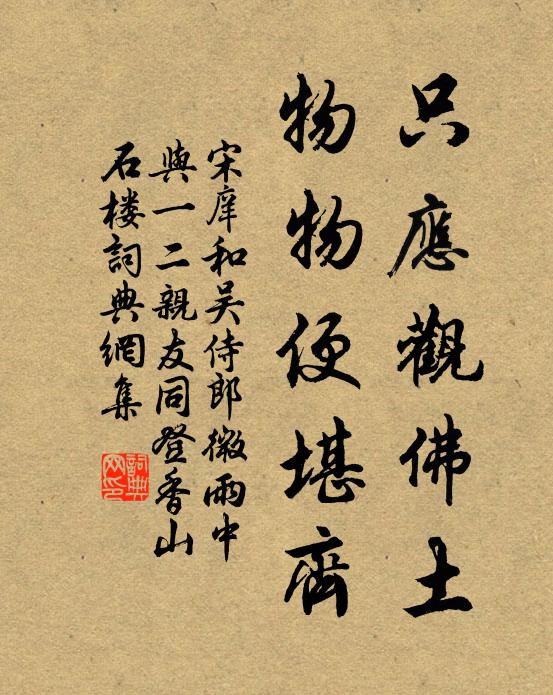 只應觀佛土
物物便堪齊
宋庠和吳侍郎微雨中
與一二親友同登香山
石楼詞典網集
詞典
网印